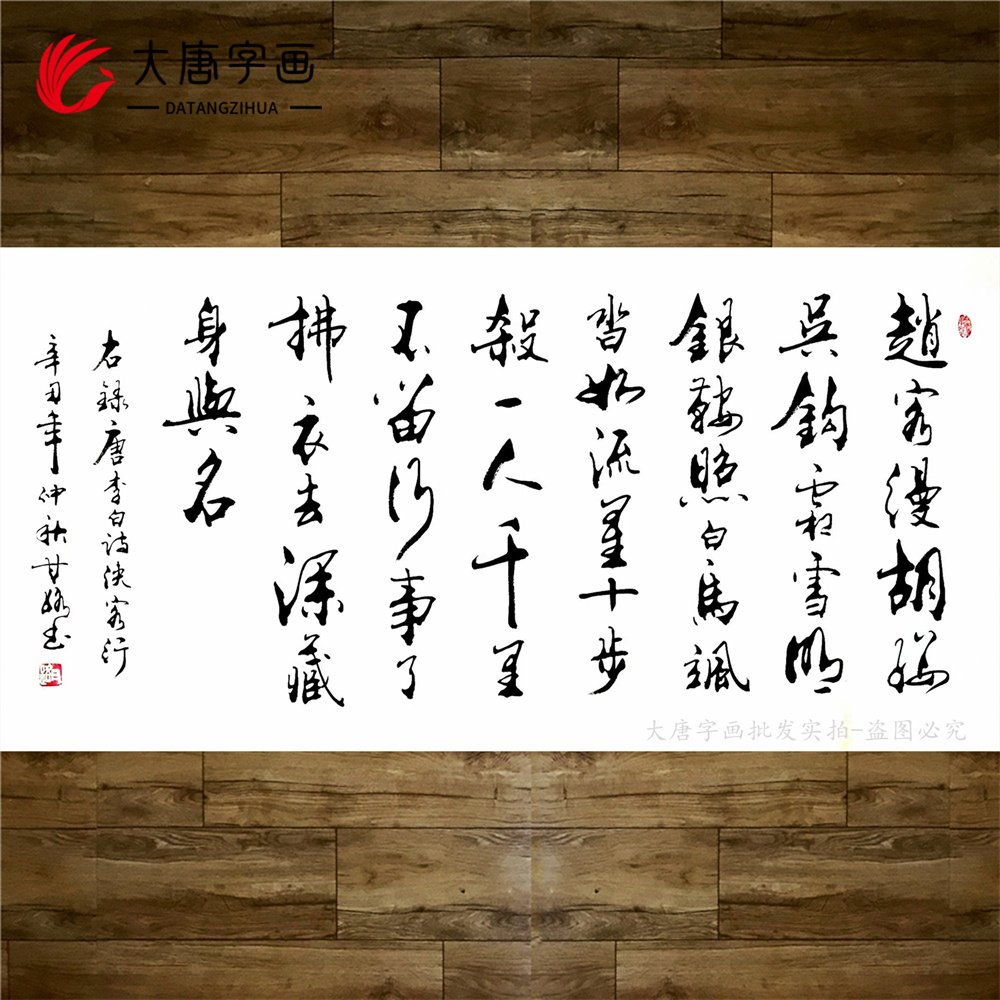 大唐字画
DATANGZIHUA
趙客縵胡纓
吳鈎霜雪明
銀鞍照白馬颯
沓如流星十步
殺一人千里
不留行事了
拂衣去深藏
身與名
右録唐李白詩俠客行
辛丑年仲秋甘书
大唐字画批发实拍-盗图必究